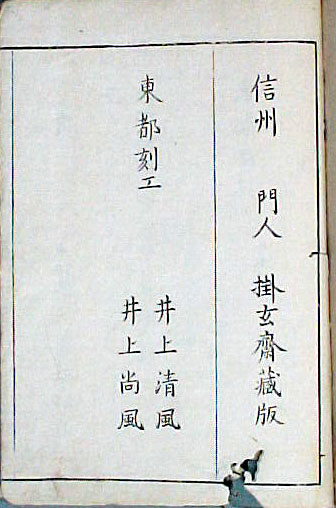 信州 門人 掛玄齋藏版
東都刻工
井上清風
井上尚風